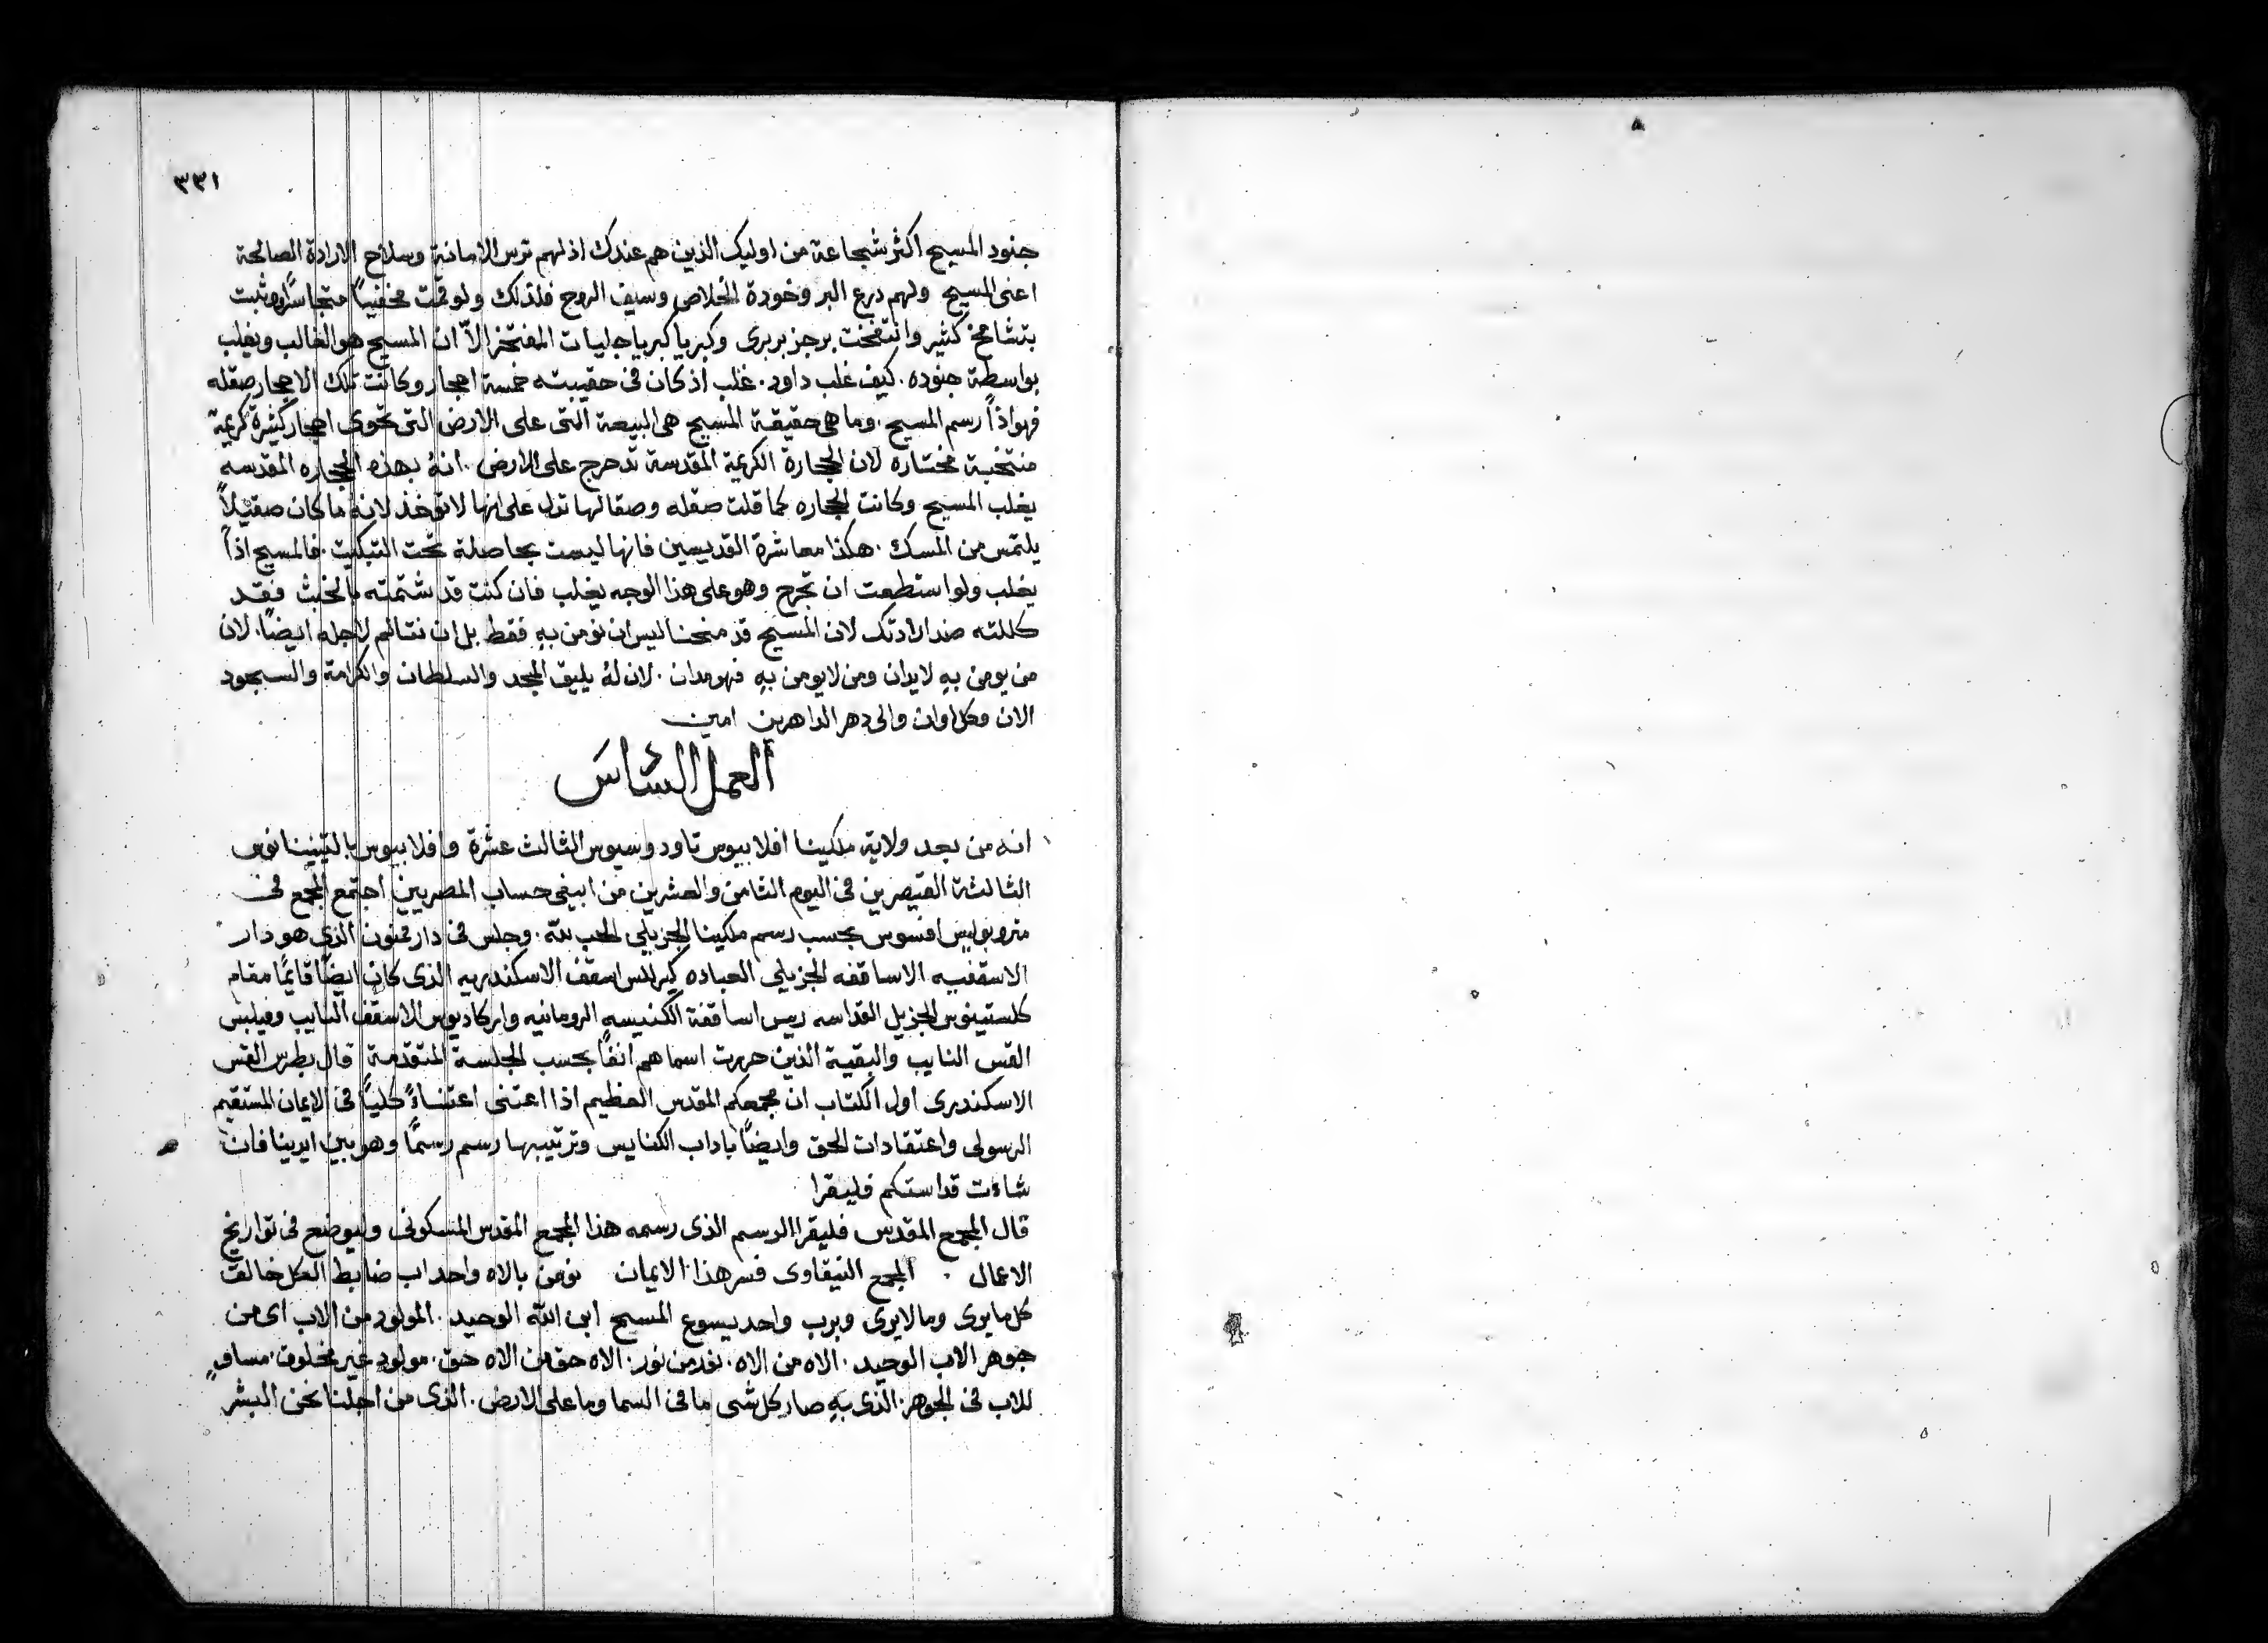 ٣٣١
جنود المسيح اكثر شجاعة من اوليك الذين هم عندك اذ لهم ترس الامانة وسلاح الارادة الصالحة
اعنى المسيح ولهم درع البر وخودة الخلاص وسيف الروح فلذلك ولو قمت مخفيًا متجاسرًا وثبت
بتشامخ كثير وانتفخت برجز بربرى وكبريا كبريا جليات المفتخر الّا ان المسيح هو الغالب ويغلب
بواسطة جنوده. كيف غلب داود. غلب اذ كان فى حقيبته خمسة احجار وكانت تلك الاحجار صقله
فهو اذاً رسم المسيح. وما هى حقيقة المسيح هى البيعة التى على الارض التى تحوى احجار كثيرة كريمة
منتخبة مختاره لان الحجارة الكريمة المقدسة تدحرج على الارض. انهُ بهذه الحجاره المقدسه
يغلب المسيح وكانت الحجاره كما قلت صقله وصقالها تدل على انها لا توخذ لانه ما كان صقيلاً
يلتمس من المسك. هكذا معاشرة القديسين فانها ليست بحاصلة تحت التبكيت. فالمسيح اذاً
يغلب ولو استطعت ان تجرح وهو على هذا الوجه يغلب فان كنت قد شتمته بالخبث فقد
كللته ضد ارادتك لان المسيح قد منحنا ليس ان نومن بهِ فقط بل ان نتالم لاجله ايضًا. لان
من يومن بهِ لا يدان ومن لا يومن بهِ فهو مدان. لان لهُ يليق المجد والسلطان والكرامة والسجود
الان وكل اوان والى دهر الداهرين امين
العمل السادس
انه من بعد ولاية ملكينا افلابيوس تاودوسيوس الثالث عشرة وافلابيوس
الثالثة القيصرين فى اليوم الثامن والعشرين من ابيفى حساب المصريين اجتمع المجمع فى
متروبوليس افسوس بحسب رسم ملكينا الجزيلى الحب لله. وجلس فى دار ممنون الذى هو دار
الاسقفيه الاساقفه الجزيلى العباده كيرللس اسقف الاسكندريه الذى كان ايضًا قايمًا مقام
كلستينوس الجزيل القداسه ريس اساقفة الكنيسه الرومانيه واركاديوس الاسقف النايب وفيلبس
القس النايب والبقية الذين حررت اسماهم انفًا بحسب الجلسة المتقدمة قال بطرس القس
الاسكندرى اول الكتاب ان مجمعكم المقدس العظيم اذا اعتنى اعتناءً كليًا فى الايمان المستقيم
الرسولى واعتقادات الحق وايضًا باداب الكنايس وترتيبها رسم رسمًا وهو بين ايدينا فان
شاءت قداستكم فليقرا
قال المجمع المقدس فليقرا الرسم الذى رسمه هذا المجمع المقدس المسكونى وليوضع فى تواريخ
الاعمال . المجمع النيقاوى فسر هذا الايمان نومن بالاه واحد اب ضابط الكل خالق
كل ما يرى وما لا يرى وبرب واحد يسوع المسيح ابن الله الوحيد. المولود من الاب اى من
جوهر الاب الوحيد. الاه من الاه. نور من نور. الاه حق من الاه حق. مولود غير مخلوق. مساوٍ
للاب فى الجوهر. الذى بهِ صار كل شى ما فى السما وما على الارض. الذى من اجلنا نحن البشر